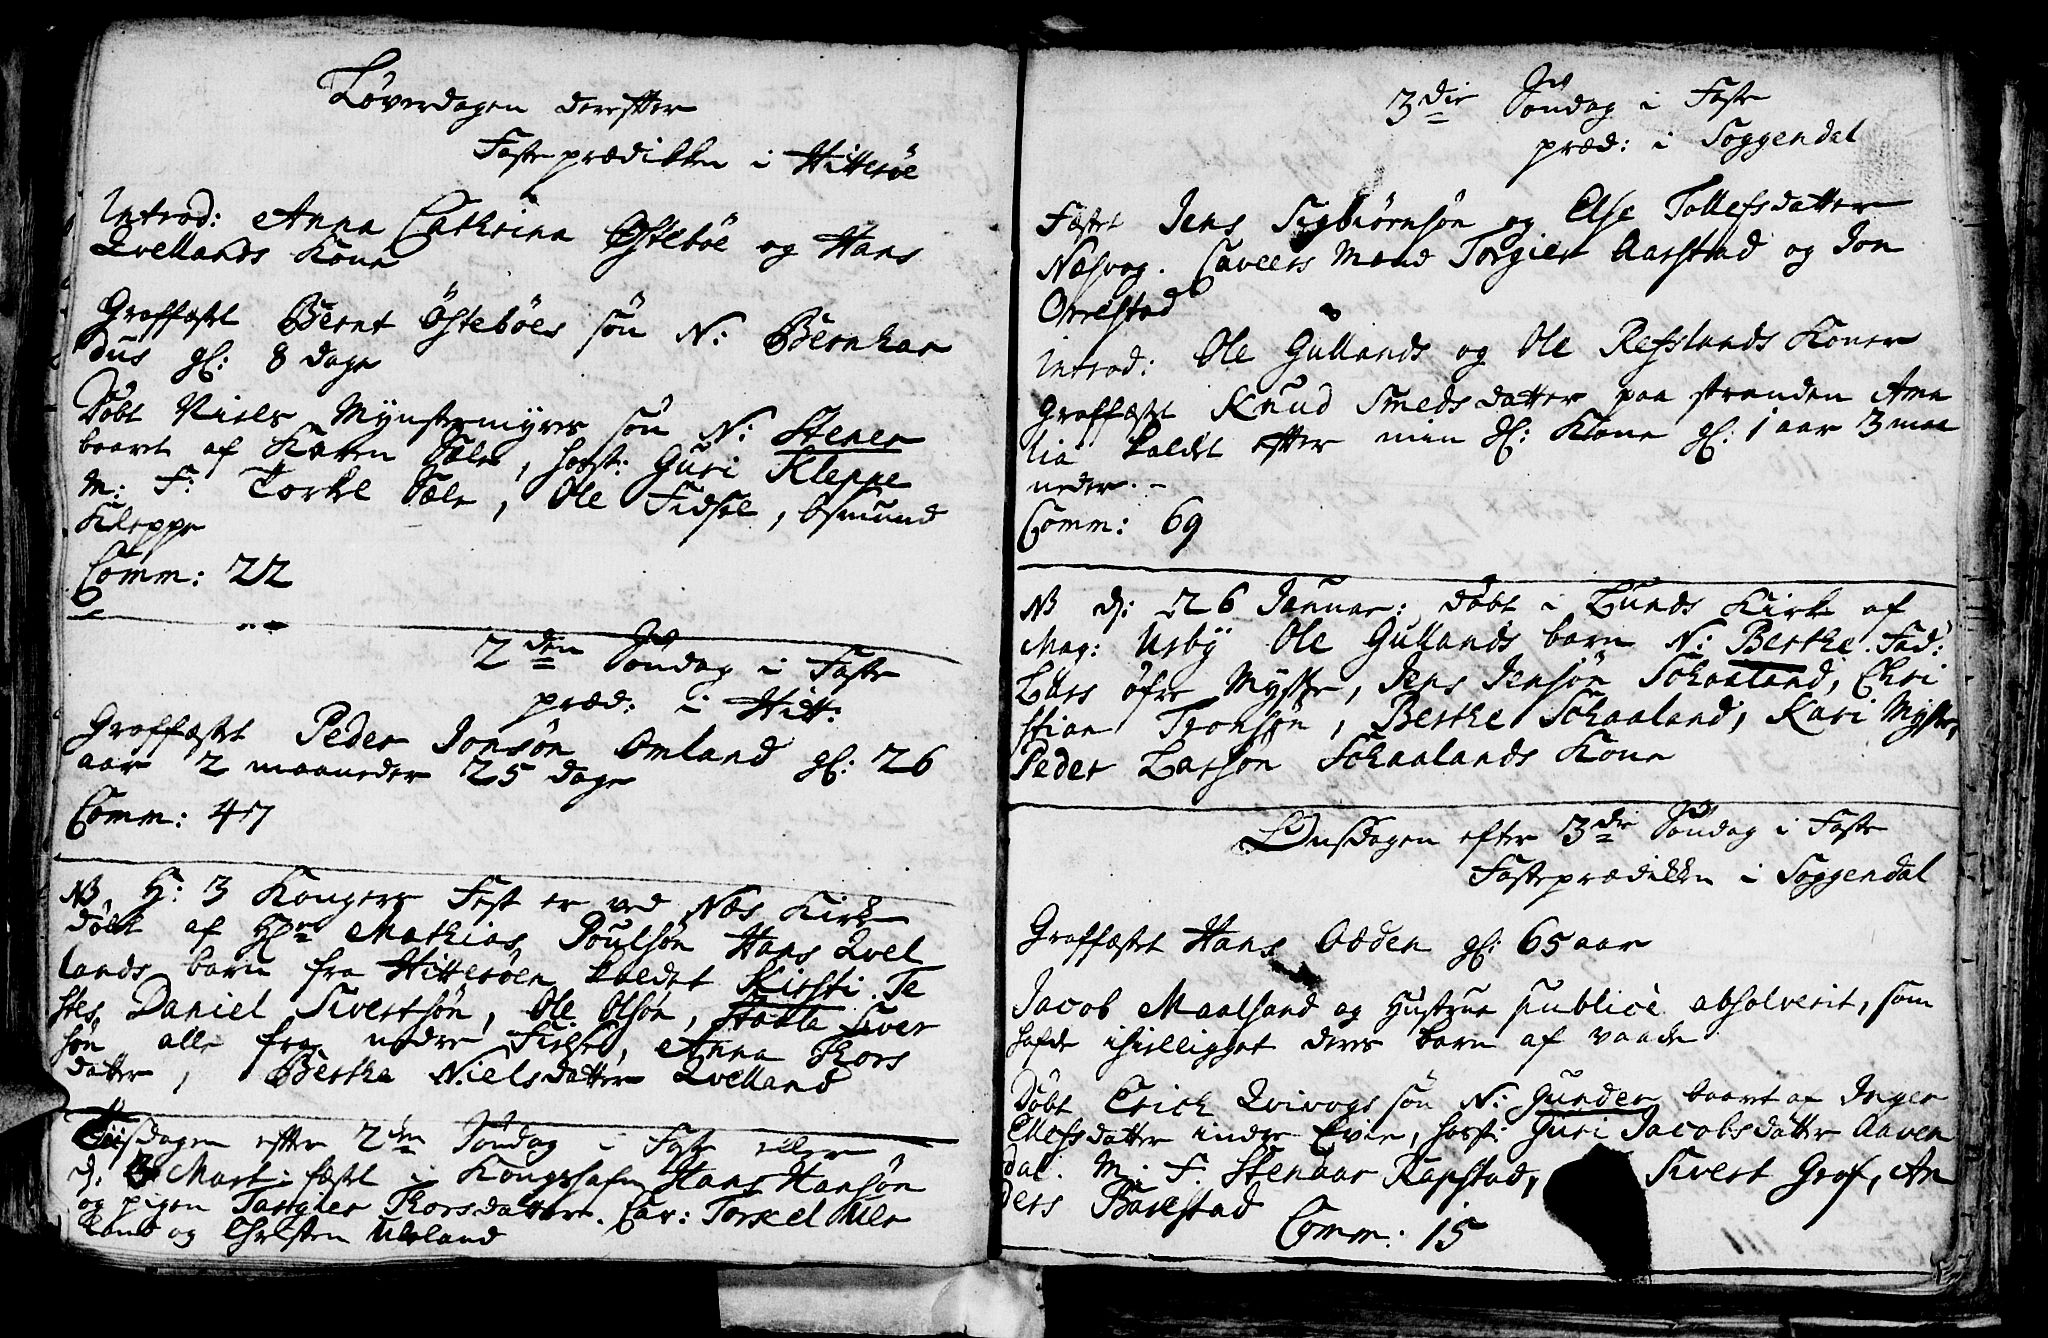 Løverdagen derefter
Fasteprædikken i Hitterøe
Introd: Anna Cathrina Østebøe og Hans
Qvellands Kone
Graffæstet Bernt Östebøes søn N: Bernhar
dus gl: 8 dage
Døbt Niels Mynstermyres søn N: Stener
baaret af Karen Sæle, hosst: Guri Kleppe
M: F: Torkel Sæle, Ole Fidsel, Osmund
Kleppe
Comm: 22
2den Søndag i Faste
præd: i Hitt:
Graffæstet Peder Jonsøn Omland gl: 26
aar 2 maaneder 25 dage
Comm: 47
NB H: 3 Kongers Fest er ved Næs Kirke
døbt af Hr Mathias Poulsøn Hans Qvel
lands barn fra Hitterøen kaldet Kirsti. Te
stes Daniel Sivertsøn, Ole Olsøn, Siver
søn alle fra nedre Fidsel, Anna Thors
datter, Berthe Nielsdatter Qvelland
Tiisdagen efter 2den Søndag i Faste eller
d: Marti fæstet i Kongshafn Hans Hansøn
og pigen Targier Thorsdatter. Cav: Torkel Ule
land og Christen Uleland
3die Søndag i Faste
præd: i Soggendal
Fæstet Jens Sigbiørnsøn og Else Tollefsdatter
Næsvog. Caveers Mænd Torgier Aarstad og Jon
Orrestad
Introd: Ole Gullands og Ole Refslands Koner
Graffæstet Knud Smeds datter paa stranden Ama
lia kaldet efter min gl: Kone gl: 1 aar 3 maa
neder. -
Comm: 69
NB d: 26 Januar: døbt i Lunds Kirke af
Mag: Usby Ole Gullands barn N: Berthe. Fad:
Lars øfre Mysse, Jens Jensøn Schaaland, Chri
stian Tronsøn, Berthe Schaaland, Kari Mysse,
Peder Larsøn Schaalands Kone
Onsdagen efter 3die Søndag i Faste
Fasteprædikken i Soggendal
Graffæstet Hans Odden gl: 65 aar
Jacob Maalsand og Hustrue publicè absolverit, som
hafde ihielligget deres barn af vaade
Døbt Erich Qvivogs søn N: Gunder baaret af Inger
Ellefsdatter indre Evie, hosst: Guri Jacobsdatter Aaven
dal. M: F: Stenaar Rapstad, Sivert Graf, An
ders Barstad
Comm: 15